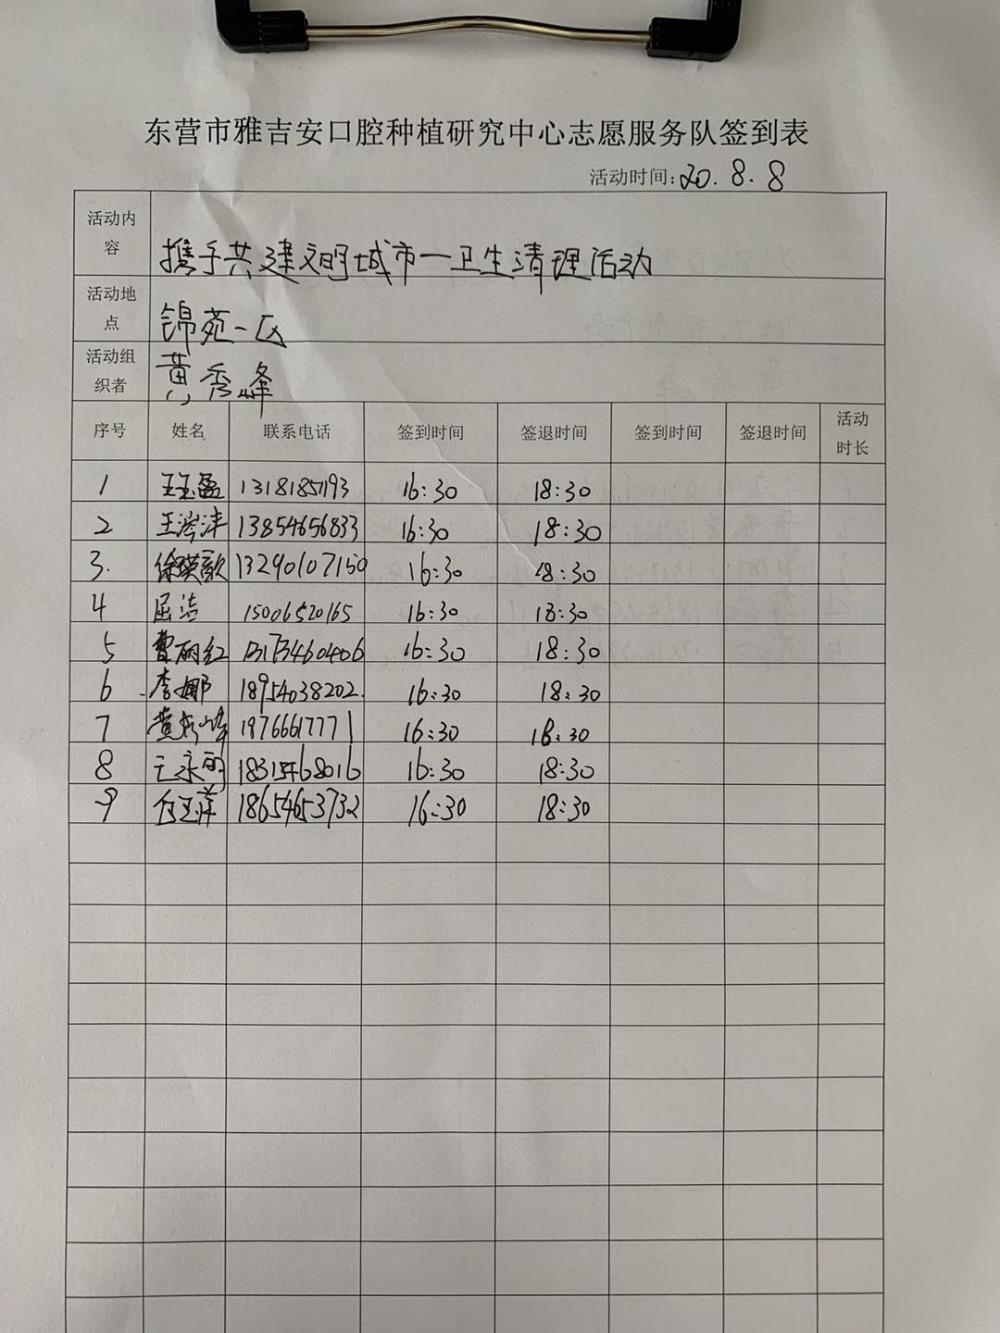 东营市雅吉安口腔种植研究中心志愿服务队签到表
活动时间: 20.8.8
活动内容 携手共建文明城市一卫生清理活动
活动地点 锦苑一区
活动组织者 黄秀峰
序号 姓名 联系电话 签到时间 签退时间 签到时间 签退时间 活动时长
1 王玉盈 13181851193 16:30 18:30
2 王 13854656833 16:30 18:30
3. 徐瑛歌 13290107150 16:30 18:30
4 屈洁 15006520165 16:30 18:30
5 曹丽红 16:30 18:30
6 李娜 18954038202 16:30 18:30
7 黄秀峰 16:30 18:30
8 王永丽 18315468016 16:30 18:30
9 18654653732 16:30 18:30